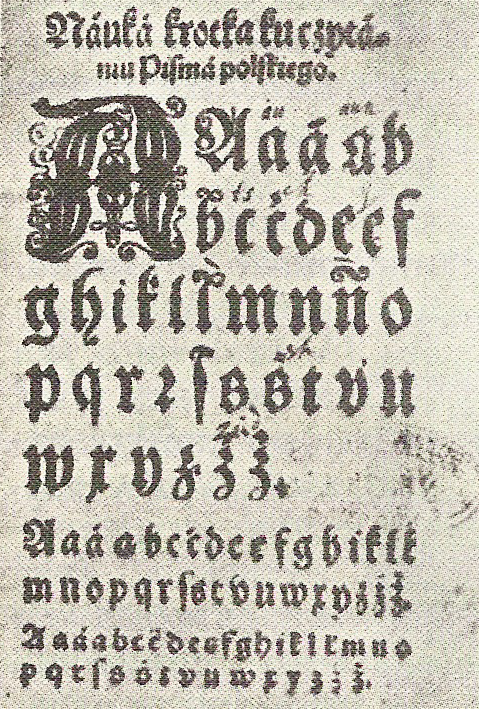 Náuká krotka ku czytá=
niu Piſmá polſkiego.
A A a á ą b
b́ c ć d e ę f
g h i k l ł m n ń o
p q r ꝛ ſ s ś t v u
w x y z ź ż.
A a á ą b c ć d e ę f g h i k l ł
m n o p q r ſ s t v u w x y z ź ż.
A a á ą b c ć d e ę f g h i k l ł m n o
p q r ſ s ś t v u w x y z ź ż.